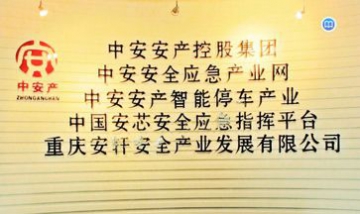 中安安产控股集团
中安安全应急产业网
中安产
ZHONGANCHAN
中安安产智能停车产业
中国安芯安全应急指挥平台
重庆安轩安全产业发展有限公司